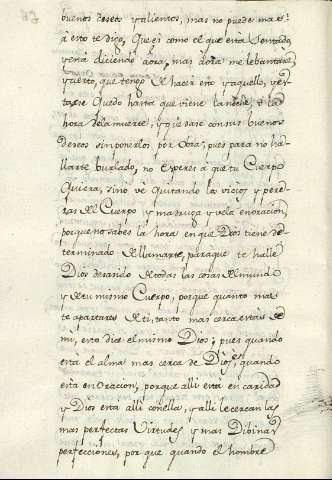 buenos deseos y alientos, mas no puede mas:
a esto te digo, Que es como el que está sentado,
y está diciendo aora, mas aora me lebantare,
y cierto, que tengo de hacer esto y aquello, y es-
tase Quedo hasta que viene la noche, o la
hora de la muerte, y que dase con sus buenos
deseos sin ponerlos por obra, pues para no ha-
llarte burlado, no esperes a que tu Cuerpo
Quiera, sino vé Quitando los vicios y pere-
zas del Cuerpo y madruga y vela en oracion,
porque no sabes la hora en que Dios tiene de-
terminado de llamarte, para que te halle
Dios desando de todas las cosas del mundo
y de tu mismo Cuerpo, porque quanto mas
te apartares de ti, tanto mas cerca estas de
mi, esto dice el mismo Dios; pues quando
está el alma mas cerca de Dios, es quando
está en Oracion, porque alli está en caridad
y Dios está alli con ella, y alli le cercan las
mas perfectas Virtudes y mas Dibinas
perfecciones, por que quando el hombre